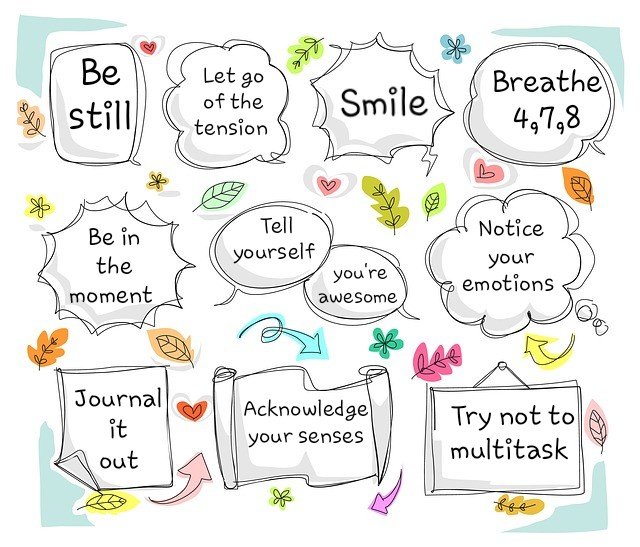 Be
still
Let go
of the
tension
Smile
Breathe
4,7,8
Be in
the
moment
Tell
yourself
you're
awesome
Notice
your
emotions
Journal
it
out
Acknowledge
your senses
Try not to
multitask